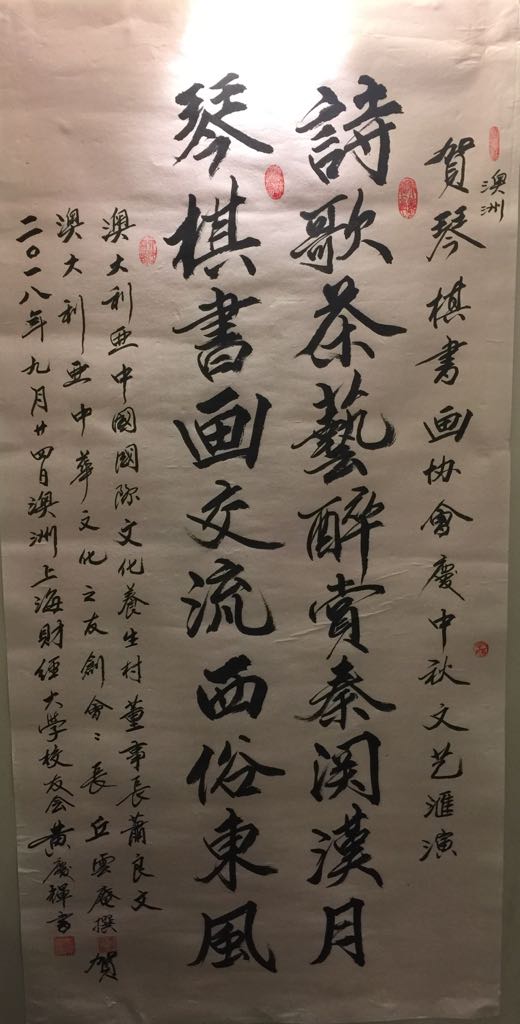 澳洲
贺琴棋书画协會慶中秋文艺滙演
詩歌茶藝醉賞秦関漢月
琴棋書画交流西俗東風
澳大利亚中國國际文化養生村董事長蕭良文
澳大利亚中华文化之友創會:長丘雲庵撰贺
二〇一八年九月廿四日澳洲上海财经大學校友会黄慶輝書